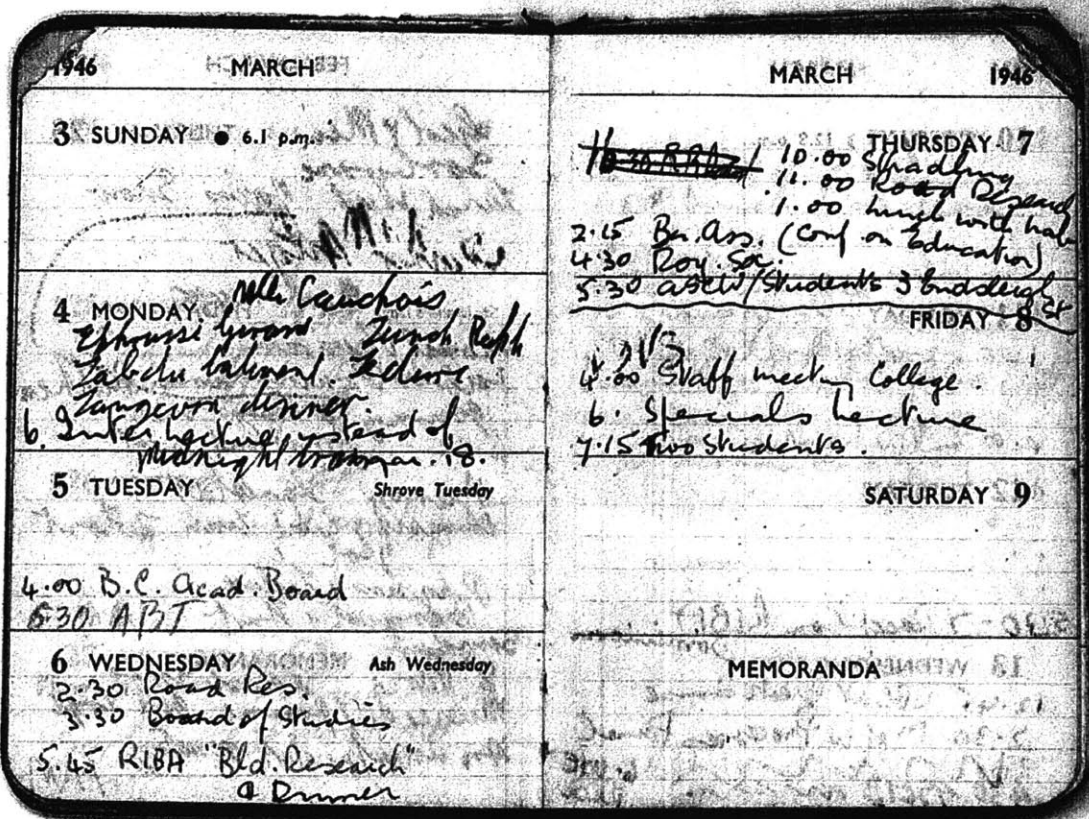 1946 MARCH
3 SUNDAY ● 6.1 p.m.
4 MONDAY
Mlle Cauchois
Lunch
dinner.
6. Inter Lecture instead of
18.
5 TUESDAY Shrove Tuesday
4.00 B.C. Acad. Board
5.30 ABT
6 WEDNESDAY Ash Wednesday
2.30 Road Res.
3.30 Board of Studies
5.45 RIBA "Bld. Research"
& Dinner
MARCH 1946
THURSDAY 7
10.00 Stradling
11.00 Road Research
1.00 Lunch with
2.15 Br. Ass. (Conf on Education)
4.30 Roy. Soc.
5.30 AScW/Students 3 Endsleigh St
FRIDAY 8
4.00 Staff meeting College.
6. Specials Lecture
7.15 Two Students.
SATURDAY 9
MEMORANDA